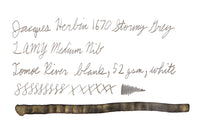 Jacques Herbin 1670 Stormy Grey
LAMY Medium Nib
Tomoe River blanks, 52 gsm, white